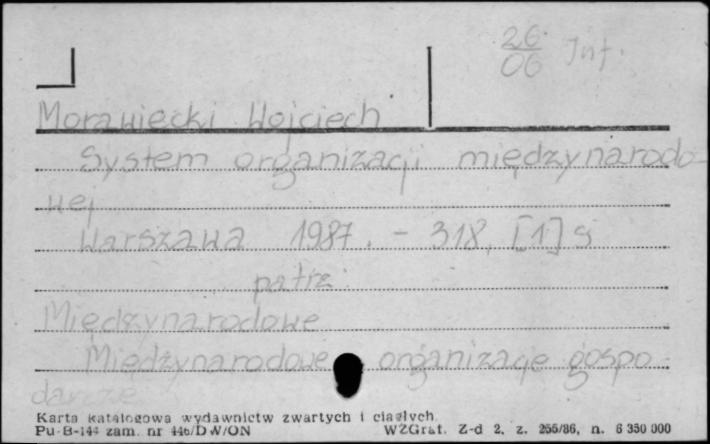 26
06 Inf.
Morawiecki Wojciech
System organizacji międzynarodo-
wej
Warszawa 1987. - 318, [1] s
patrz
Międzynarodowe
Międzynarodowe organizacje gospo-
darcze
Karta katalogowa wydawnictw zwartych i ciągłych.
Pu-B-144 zam. nr 446/DW/ON WZGraf. Z-d 2, z. 255/86, n. 6 350 000